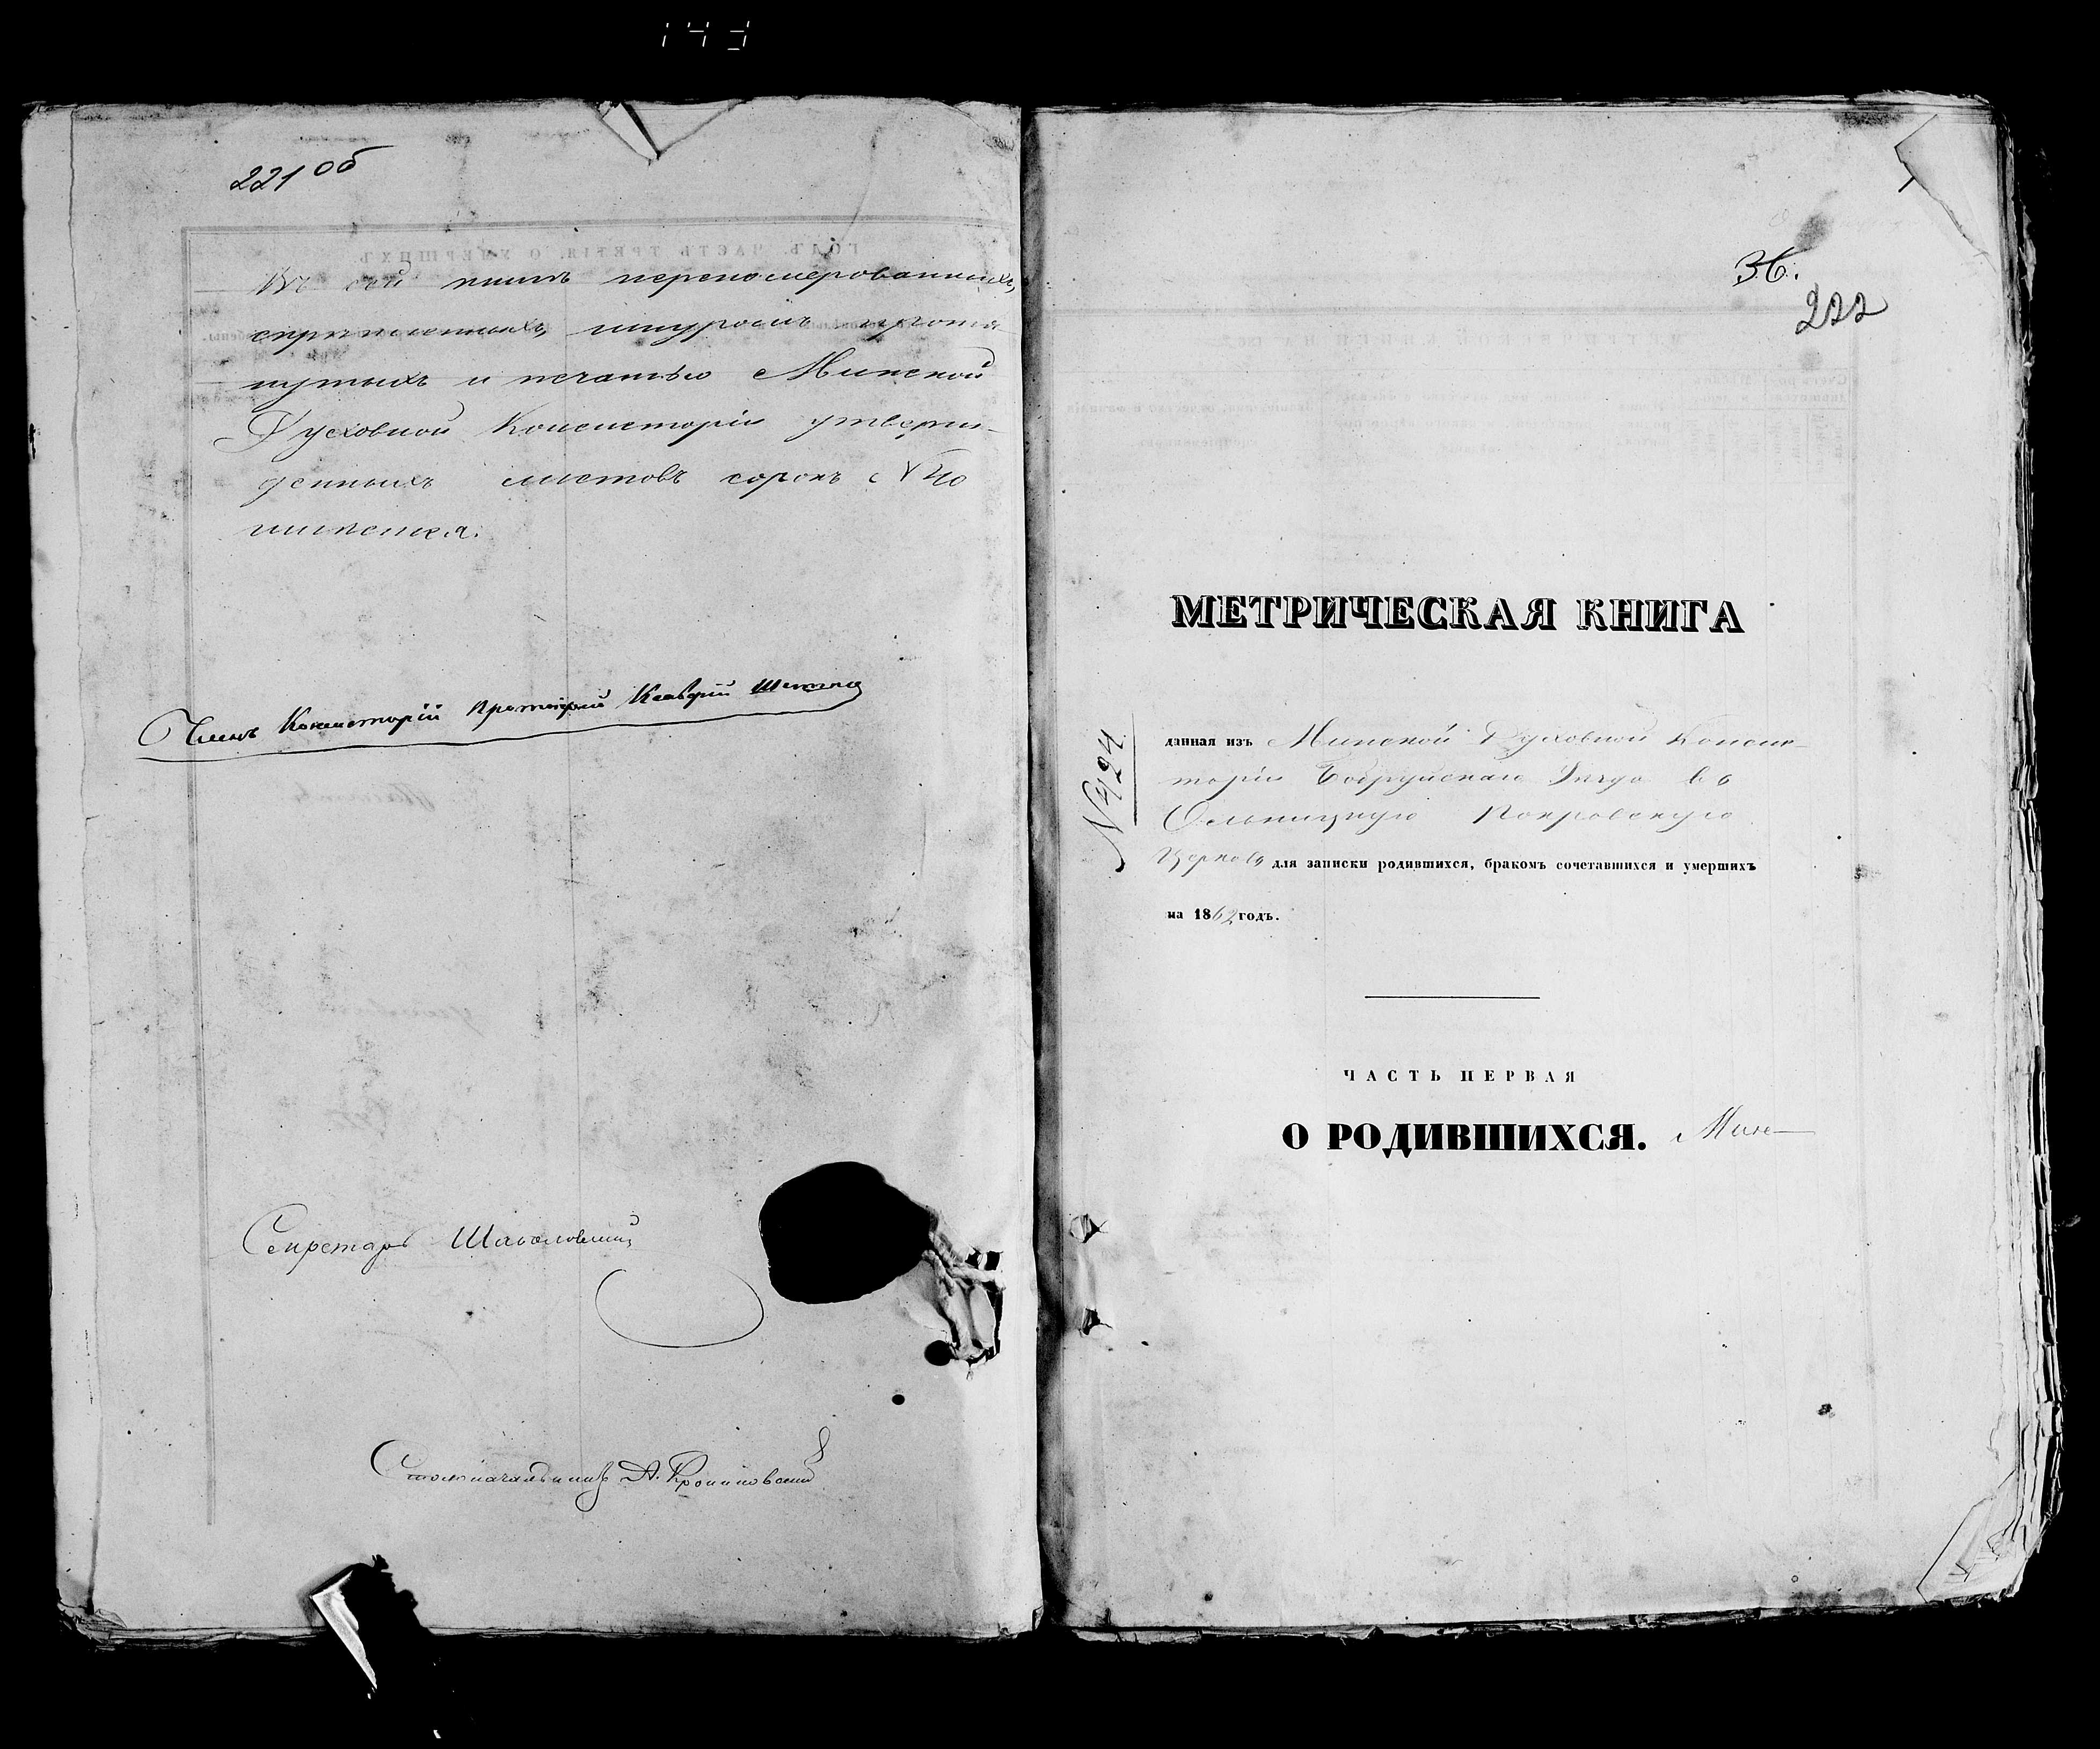 143
221 об
Въ сей книгѣ перенумерованныхъ,
скрѣпленныхъ, шнуромъ протя-
нутыхъ и печатью Минской
Духовной Консисторіи утверж-
денныхъ листовъ сорокъ N 40
Членъ Консисторіи Протоіерей
Секретарь
Столоначальникъ А.
36.
222
МЕТРИЧЕСКАЯ КНИГА
N 424
данная изъ Минской Духовной Консис-
торіи Бобруйскаго Уѣзда въ
Ольницкую Покровскую
Церковь для записки родившихся, бракомъ сочетавшихся и умершихъ
на 1862 годъ.
ЧАСТЬ ПЕРВАЯ
О РОДИВШИХСЯ. Мин-